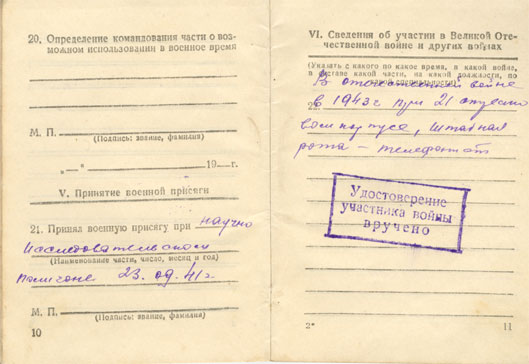 20. Определение командования части о воз-
можном использовании в военное время
М. П.
(Подпись: звание, фамилия)
„—“ 19 г.
V. Принятие военной присяги
21. Принял военную присягу при научно
исследовательском
(Наименование части, число, месяц и год)
полигоне 23. 09. 41 г.
М. П.
(Подпись: звание, фамилия)
10
VI. Сведения об участии в Великой Оте-
чественной войне и других войнах
(Указать с какого по какое время, в какой войне,
в составе какой части, на какой должности, по
какой специальности)
В отечественной войне
22. в 1943 г при 21 стрелко
вом корпусе, штабная
рота – телефонист
Удостоверение
участника войны
вручено
2*
11